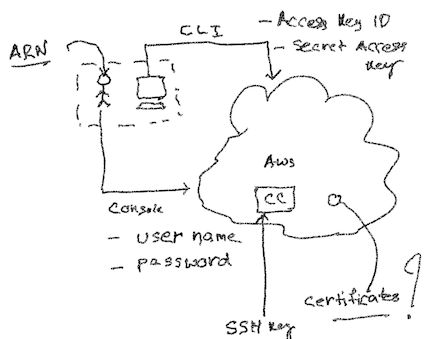 ARN
CLI
- Access Key ID
- Secret Access
Key
Aws
CC
Console
- user name
- password
SSH Key
Certificates ?